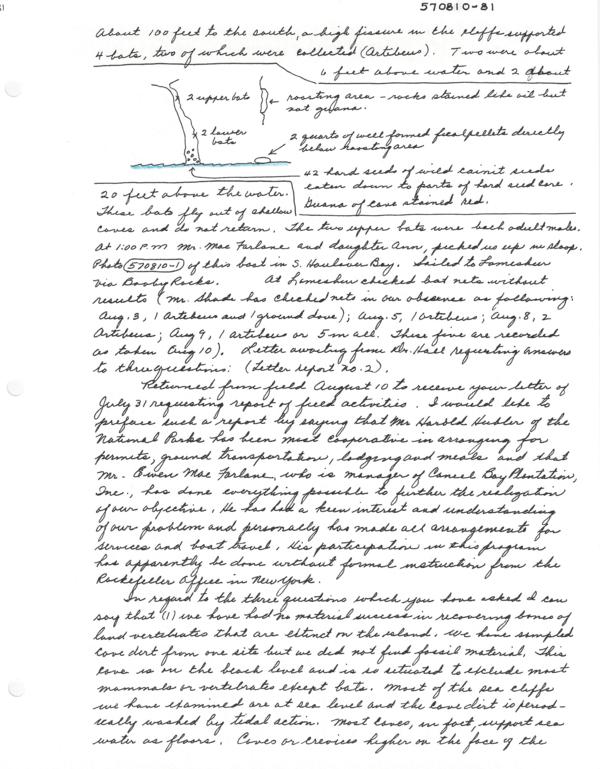 570810-81
About 100 feet to the south, a high fissure in the cliffs supported
4 bats, two of which were collected (Artibeus). Two were about
6 feet above water and 2 about
2 upper bats
roosting area - rocks stained like oil but
not guana.
2 lower
bats
2 quarts of well formed fecal pellets directly
below roosting area
42 hard seeds of wild cainit seeds
eaten down to parts of hard seed core.
Guana of cave stained red.
20 feet above the water.
These bats fly out of shallow
caves and do not return. The two upper bats were both adult males.
At 1:00 P.M Mr. MacFarlane and daughter Ann, picked us up in sloop.
Photo 570810-1 of this boat in S. Haulover Bay. Sailed to Lameshur
via Booby Rocks. At Lameshur checked bat nets without
results (Mr. Shade has checked nets in our absence as following:
Aug. 3, 1 Artibeus and 1 ground dove); Aug. 5, 1 Artibeus; Aug. 8, 2
Artibeus; Aug 9, 1 artibeus or 5 in all. These five are recorded
as taken Aug 10). Letter awaiting from Dr. Hall requesting answers
to three questions: (Letter report no. 2).
Returned from field August 10 to receive your letter of
July 31 requesting report of field activities. I would like to
preface such a report by saying that Mr Harold Hubler of the
National Parks has been most cooperative in arranging for
permits, ground transportation, lodging and meals and that
Mr. Owen MacFarlane, who is manager of Caneel Bay Plantation,
Inc., has done everything possible to further the realization
of our objective. He has had a keen interest and understanding
of our problem and personally has made all arrangements for
services and boat travel. His participation in this program
has apparently be done without formal instruction from the
Rockefeller Office in New York.
In regard to the three questions which you have asked I can
say that (1) we have had no material success in recovering bones of
land vertebrates that are extinct on the island. We have sampled
cave dirt from one site but we did not find fossil material. This
cave is on the beach level and is so situated to exclude most
mammals or vertebrates except bats. Most of the sea cliffs
we have examined are at sea level and the cave dirt is period-
ically washed by tidal action. Most caves, in fact, support sea
water as floors. Caves or crevices higher on the face of the